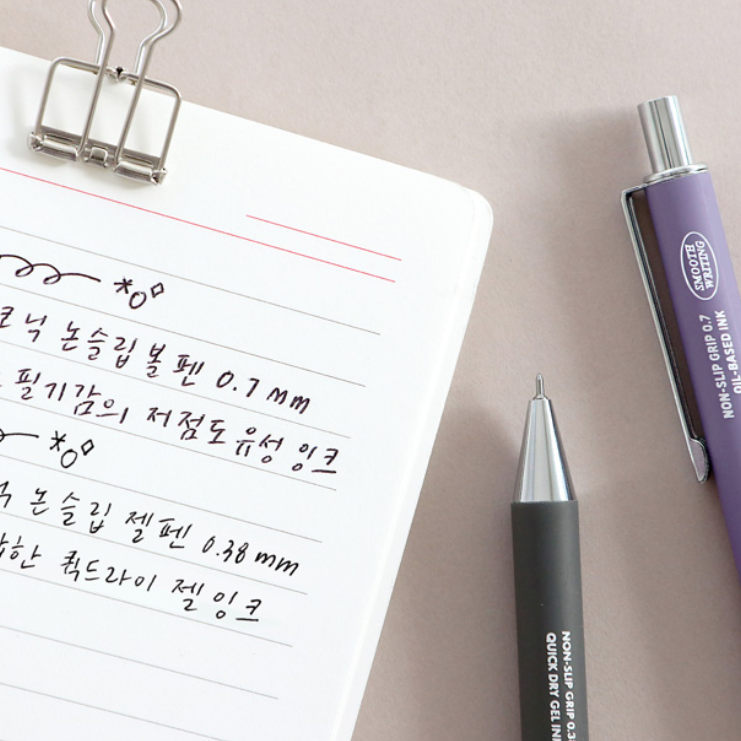 논슬립볼펜 0.7 mm
필기감의 저점도유성잉크
논슬립 젤펜 0.38 mm
퀵드라이 젤잉크
SMOOTH
WRITING
NON-SLIP GRIP 0.7
OIL-BASED INK
NON-SLIP GRIP
QUICK DRY GEL INK